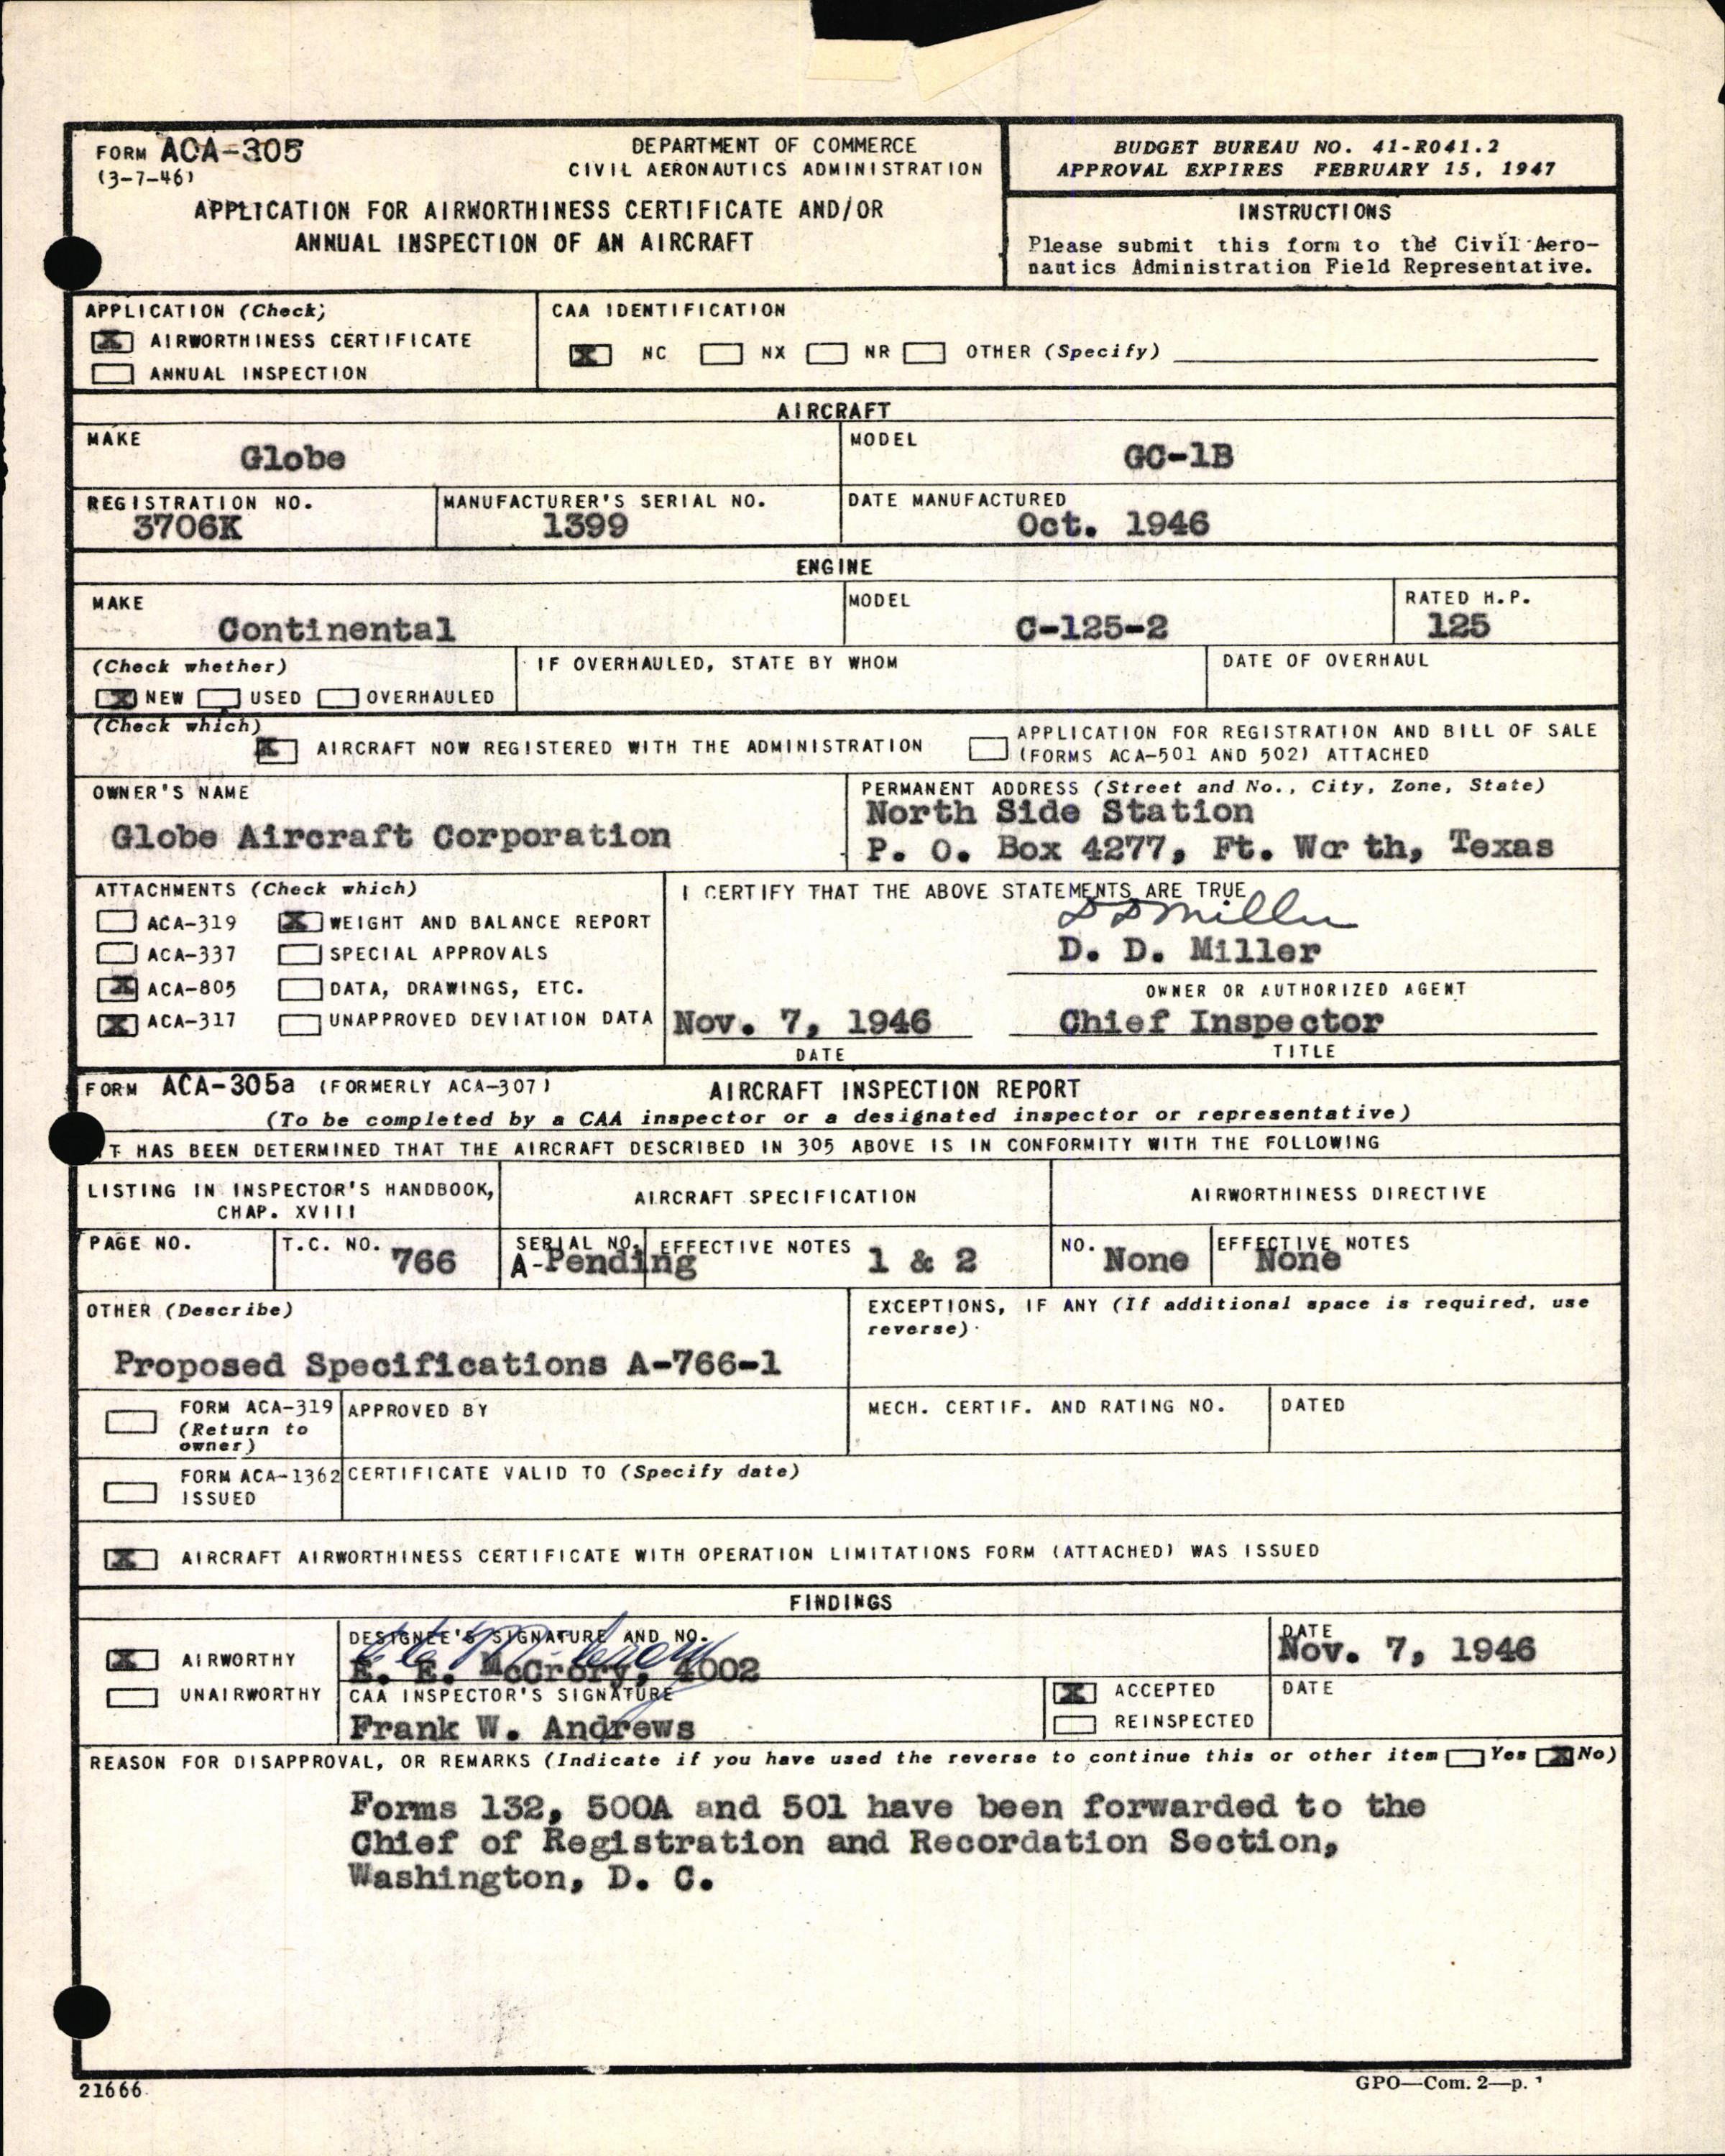 FORM ACA-305
(3-7-46)
DEPARTMENT OF COMMERCE
CIVIL AERONAUTICS ADMINISTRATION
APPLICATION FOR AIRWORTHINESS CERTIFICATE AND/OR
ANNUAL INSPECTION OF AN AIRCRAFT
BUDGET BUREAU NO. 41-R041.2
APPROVAL EXPIRES FEBRUARY 15, 1947
INSTRUCTIONS
Please submit this form to the Civil Aero-
nautics Administration Field Representative.
APPLICATION (Check)
X AIRWORTHINESS CERTIFICATE
ANNUAL INSPECTION
CAA IDENTIFICATION
X NC NX NR OTHER (Specify)
AIRCRAFT
MAKE
Globe
MODEL
GC-1B
REGISTRATION NO.
3706K
MANUFACTURER'S SERIAL NO.
1399
DATE MANUFACTURED
Oct. 1946
ENGINE
MAKE
Continental
MODEL
C-125-2
RATED H.P.
125
(Check whether)
X NEW USED OVERHAULED
IF OVERHAULED, STATE BY WHOM
DATE OF OVERHAUL
(Check which)
X AIRCRAFT NOW REGISTERED WITH THE ADMINISTRATION
APPLICATION FOR REGISTRATION AND BILL OF SALE
(FORMS ACA-501 AND 502) ATTACHED
OWNER'S NAME
Globe Aircraft Corporation
PERMANENT ADDRESS (Street and No., City, Zone, State)
North Side Station
P. O. Box 4277, Ft. Worth, Texas
ATTACHMENTS (Check which)
ACA-319 X WEIGHT AND BALANCE REPORT
ACA-337 SPECIAL APPROVALS
X ACA-805 DATA, DRAWINGS, ETC.
X ACA-317 UNAPPROVED DEVIATION DATA
I CERTIFY THAT THE ABOVE STATEMENTS ARE TRUE
D D Miller
D. D. Miller
OWNER OR AUTHORIZED AGENT
Nov. 7, 1946 Chief Inspector
DATE TITLE
FORM ACA-305a (FORMERLY ACA-307) AIRCRAFT INSPECTION REPORT
(To be completed by a CAA inspector or a designated inspector or representative)
IT HAS BEEN DETERMINED THAT THE AIRCRAFT DESCRIBED IN 305 ABOVE IS IN CONFORMITY WITH THE FOLLOWING
LISTING IN INSPECTOR'S HANDBOOK,
CHAP. XVIII
AIRCRAFT SPECIFICATION
AIRWORTHINESS DIRECTIVE
PAGE NO.
T.C. NO. 766
SERIAL NO.
A-Pending
EFFECTIVE NOTES 1 & 2
NO. None
EFFECTIVE NOTES
None
OTHER (Describe)
Proposed Specifications A-766-1
EXCEPTIONS, IF ANY (If additional space is required, use
reverse)
FORM ACA-319
(Return to
owner)
APPROVED BY
MECH. CERTIF. AND RATING NO.
DATED
FORM ACA-1362
ISSUED
CERTIFICATE VALID TO (Specify date)
X AIRCRAFT AIRWORTHINESS CERTIFICATE WITH OPERATION LIMITATIONS FORM (ATTACHED) WAS ISSUED
FINDINGS
X AIRWORTHY
UNAIRWORTHY
DESIGNEE'S SIGNATURE AND NO.
E. E. McCrory, 4002
DATE
Nov. 7, 1946
CAA INSPECTOR'S SIGNATURE
Frank W. Andrews
X ACCEPTED
REINSPECTED
DATE
REASON FOR DISAPPROVAL, OR REMARKS (Indicate if you have used the reverse to continue this or other item Yes X No)
Forms 132, 500A and 501 have been forwarded to the
Chief of Registration and Recordation Section,
Washington, D. C.
21666
GPO—Com. 2—p.